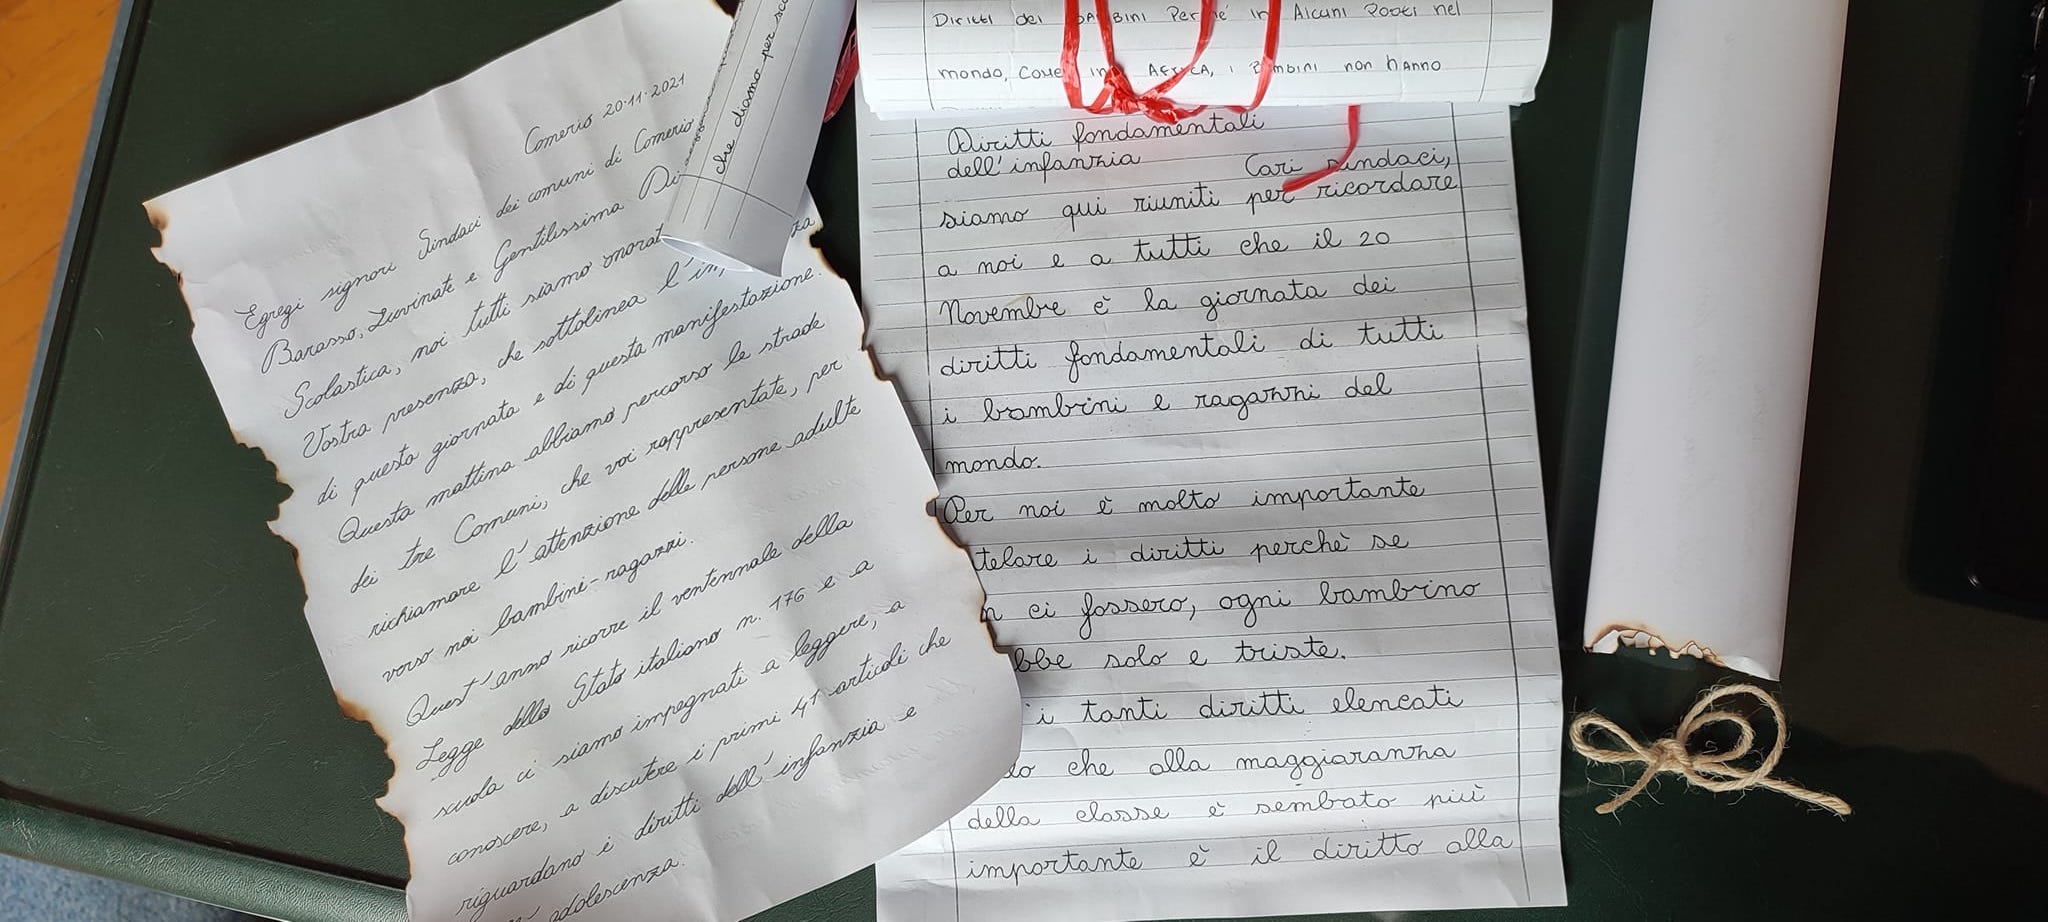 Comerio 20.11.2021
Egregi signori Sindaci dei comuni di Comerio
Barasso, Luvinate e Gentilissima Di
Scolastica, noi tutti siamo onorat
Vostra presenza, che sottolinea l'im za
di questa giornata e di questa manifestazione.
Questa mattina abbiamo percorso le strade
dei tre Comuni, che voi rappresentate, per
richiamare l'attenzione delle persone adulte
verso noi bambini-ragazzi.
Quest'anno ricorre il ventennale della
Legge dello Stato italiano n. 176 e a
scuola ci siamo impegnati a leggere, a
conoscere, a discutere i primi 41 articoli che
riguardano i diritti dell'infanzia e
adolescenza.
che diamo per sc
Diritti dei BAMBINI Perché in Alcuni Posti nel
mondo, Come in AFRICA, i Bambini non hanno
Diritti fondamentali
dell'infanzia Cari sindaci,
siamo qui riuniti per ricordare
a noi e a tutti che il 20
Novembre è la giornata dei
diritti fondamentali di tutti
i bambini e ragazzi del
mondo.
Per noi è molto importante
telare i diritti perchè se
n ci fossero, ogni bambino
bbe solo e triste.
i tanti diritti elencati
do che alla maggiaranza
della classe è sembato più
importante è il diritto alla